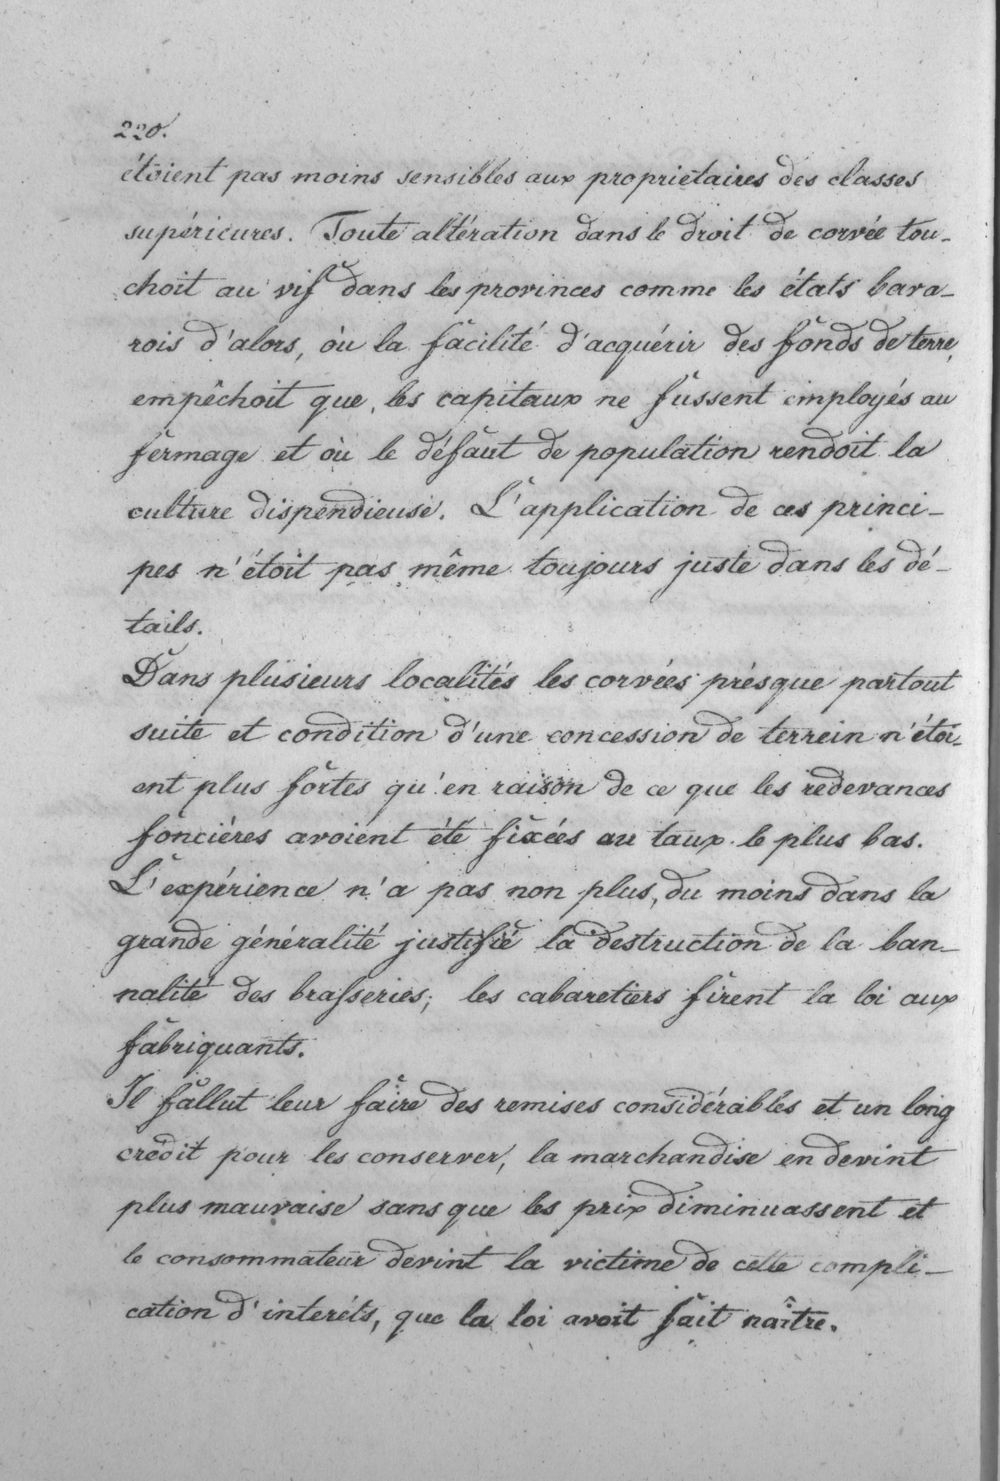 220.
étoient pas moins sensibles aux propriétaires des classes
supérieures. Toute altération dans le droit de corvée tou-
choit au vif dans les provinces comme les états bava-
rois d'alors, où la facilité d'acquérir des fonds de terre,
empêchoit que les capitaux ne fussent employés au
fermage et où le défaut de population rendoit la
culture dispendieuse. L'application de ces princi-
pes n'étoit pas même toujours juste dans les dé-
tails.
Dans plusieurs localités les corvées présque partout
suite et condition d'une concession de terrein n'étoi-
ent plus fortes qu'en raison de ce que les redevances
fonciéres avoient été fixées au taux le plus bas.
L'expérience n'a pas non plus, du moins dans la
grande généralité justifié la destruction de la ban-
nalité des brasseries; les cabaretiers firent la loi aux
fabriquants.
Il fallut leur faire des remises considérables et un long
crédit pour les conserver, la marchandise en devint
plus mauvaise sans que les prix diminuassent et
le consommateur devint la victime de cette compli-
cation d'interéts, que la loi avoit fait naître.